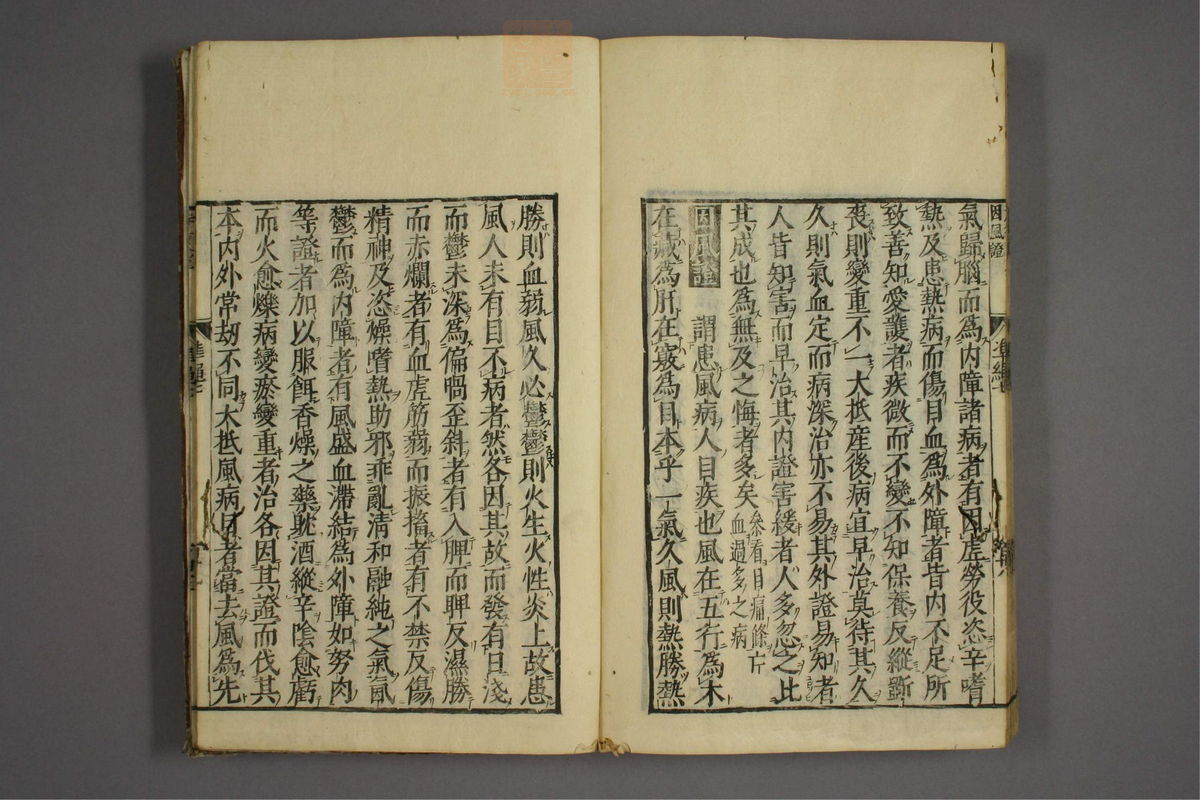 因風證
氣歸腦而為内障諸病者有因虛勞役恣辛嗜
熱及患熱病而傷目血為外障者皆内不足所
致善知愛護者疾微而不變不知保養反縱斲
喪則變重不一大抵産後病宜早治莫待其久
久則氣血定而病深治亦不易其外證易知者
人皆知害而早治其内證害緩者人多忽之比
其成也為無及之悔者多矣
叅看目痛條亡
血過多之病
因風證
謂患風病人目疾也風在五行為木
在藏為肝在竅為目本乎一氣久風則熱勝熱
勝則血弱風久必鬱鬱則火生火性炎上故患
風人未有目不病者然各因其故而發有日淺
而鬱未深為偏喎歪斜者有入脾而脾反濕勝
而赤爛者有血虛筋弱而振搐者有不禁反傷
精神及恣燥嗜熱助邪乖亂清和融純之氣氣
鬱而為内障者有風盛血滯結為外障如努肉
等證者加以服餌香燥之藥躭酒縱辛陰愈虧
而火愈爍病變瘀變重者治各因其證而伐其
本内外常劫不同大抵風病目者當去風為先